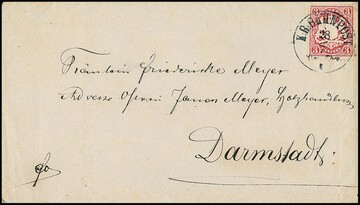 K.B.BAHNPOST
3 3
3 3
Fräulein Friederike Meyer
Adresse Herrn Jonas Meyer, Holzhandlung
Darmstadt.